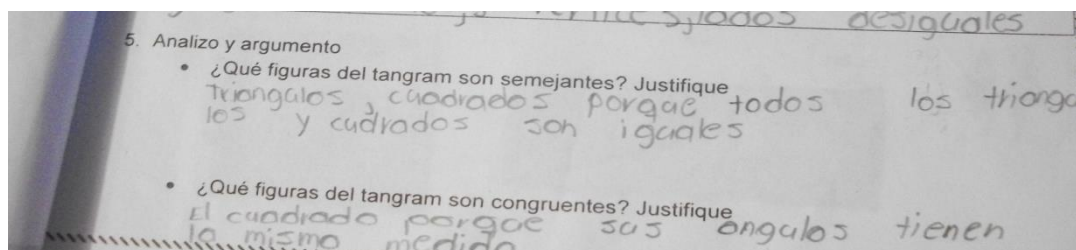 lados desiguales
5. Analizo y argumento
• ¿Qué figuras del tangram son semejantes? Justifique
Triangulos, cuadrados porque todos los triango
los y cudrados son iguales
• ¿Qué figuras del tangram son congruentes? Justifique
El cuadrado porque sus angulos tienen
la mismo medida